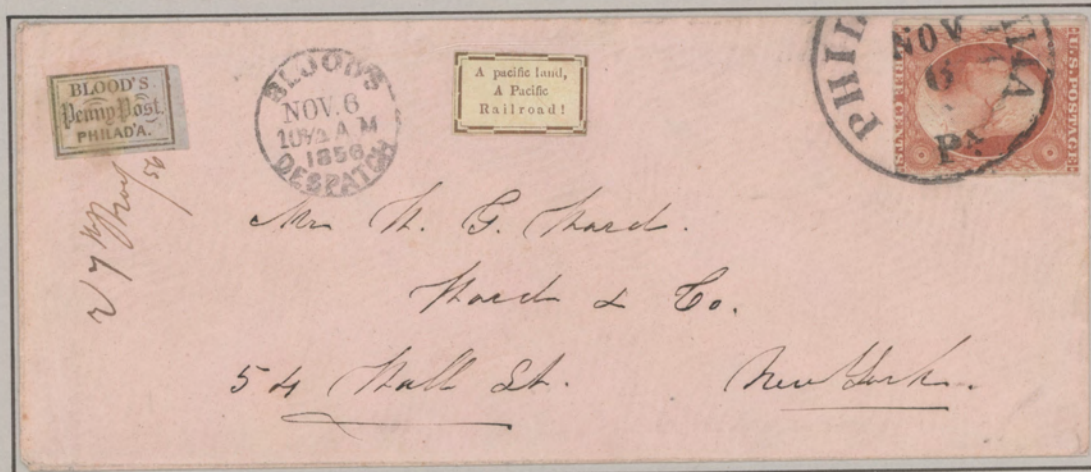 BLOOD'S
Penny Post.
PHILAD'A.
BLOOD'S
NOV. 6
10½ A M
1856
DESPATCH
A pacific land,
A Pacific
Railroad!
NOV
6
PA
U.S. POSTAGE
THREE CENTS
7th Nov/56
Mr
G. Ward.
Ward & Co.
54 Wall St. New York.